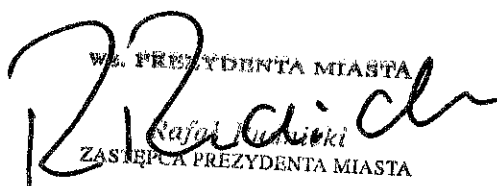 WZ. PREZYDENTA MIASTA
Rafał
ZASTĘPCA PREZYDENTA MIASTA